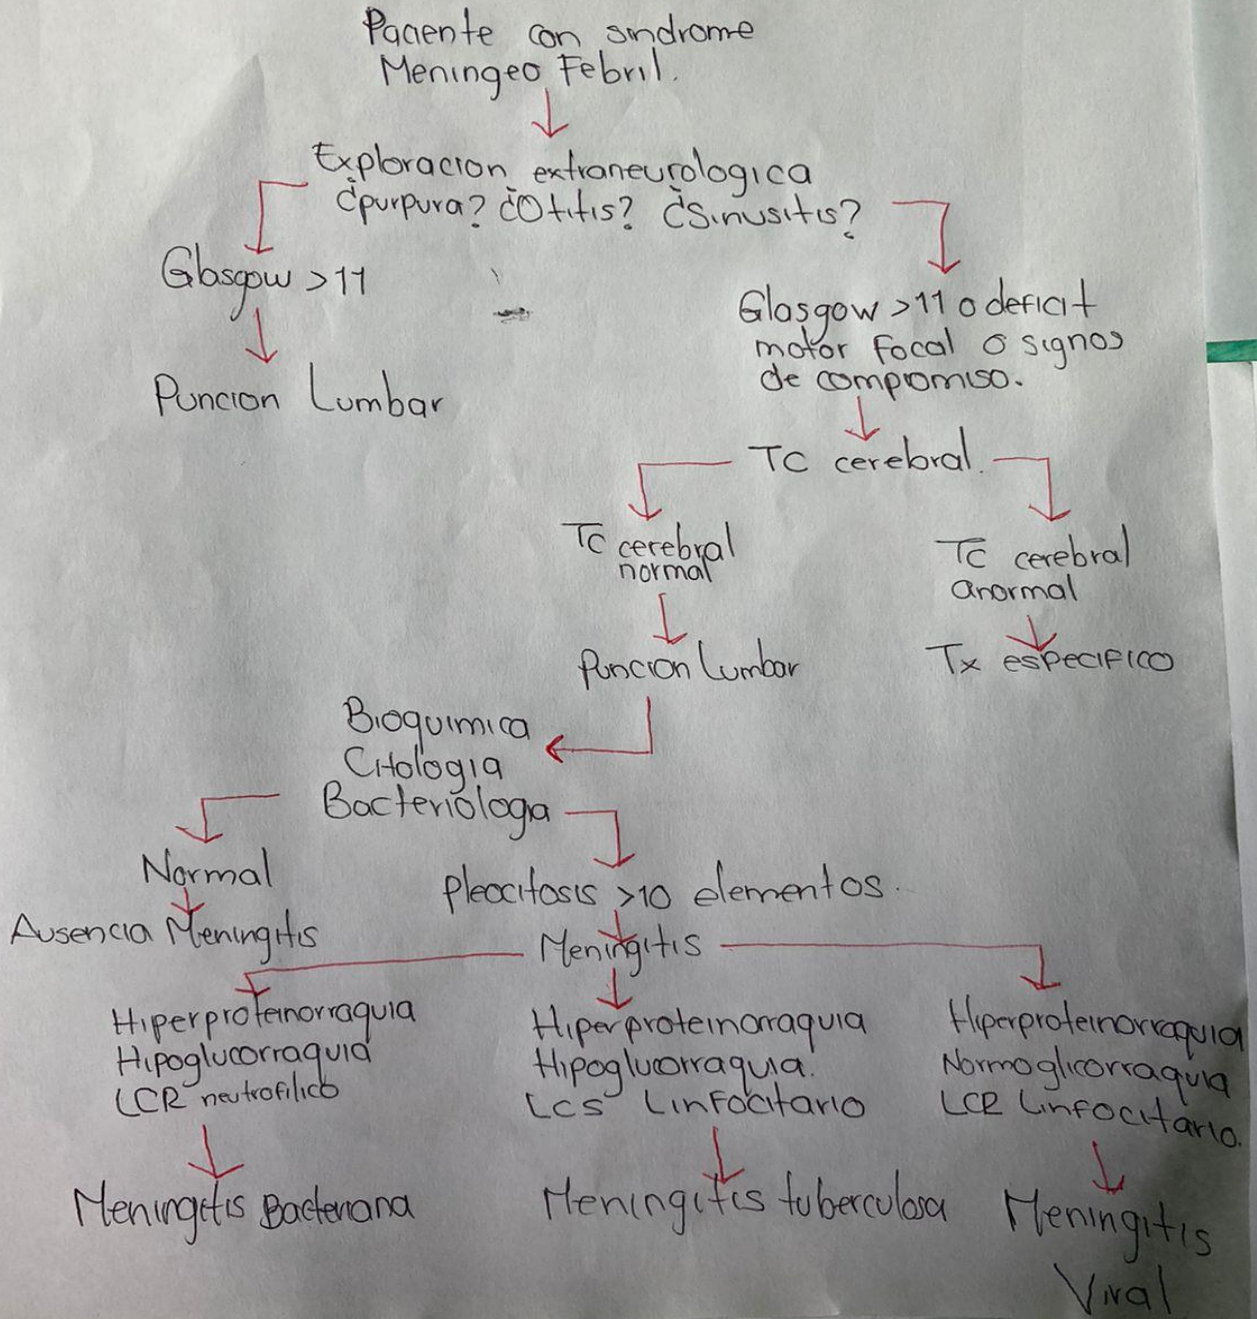 Paciente con sindrome
Meningeo Febril.
Exploracion extraneurologica
¿purpura? ¿Otitis? ¿Sinusitis?
Glasgow >11
Puncion Lumbar
Glasgow >11 o deficit
motor Focal o signos
de compromiso.
TC cerebral.
TC cerebral
normal
TC cerebral
anormal
Puncion Lumbar
Tx especifico
Bioquimica
Citologia
Bacteriologa
Normal
Ausencia Meningitis
pleocitosis >10 elementos.
Meningitis
Hiperproteinorraquia
Hipoglucorraquia
LCR neutrofilico
Meningitis Bacteriana
Hiperproteinorraquia
Hipoglucorraquia.
LCS Linfocitario
Meningitis tuberculosa
Hiperproteinorraquia
Normoglicorraquia
LCR Linfocitario.
Meningitis
Viral